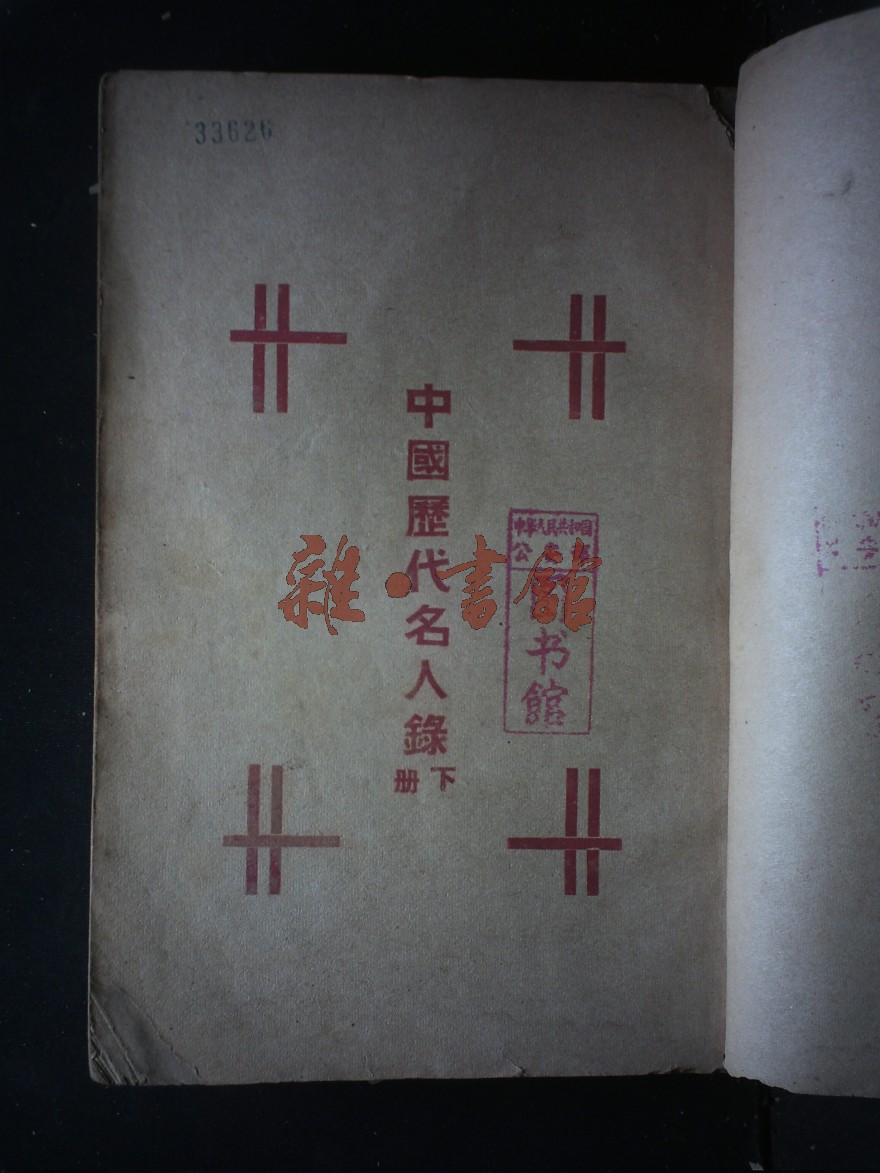 33626
中國歷代名人錄
下册
雜·書館
中华人民共和国
公安
书館